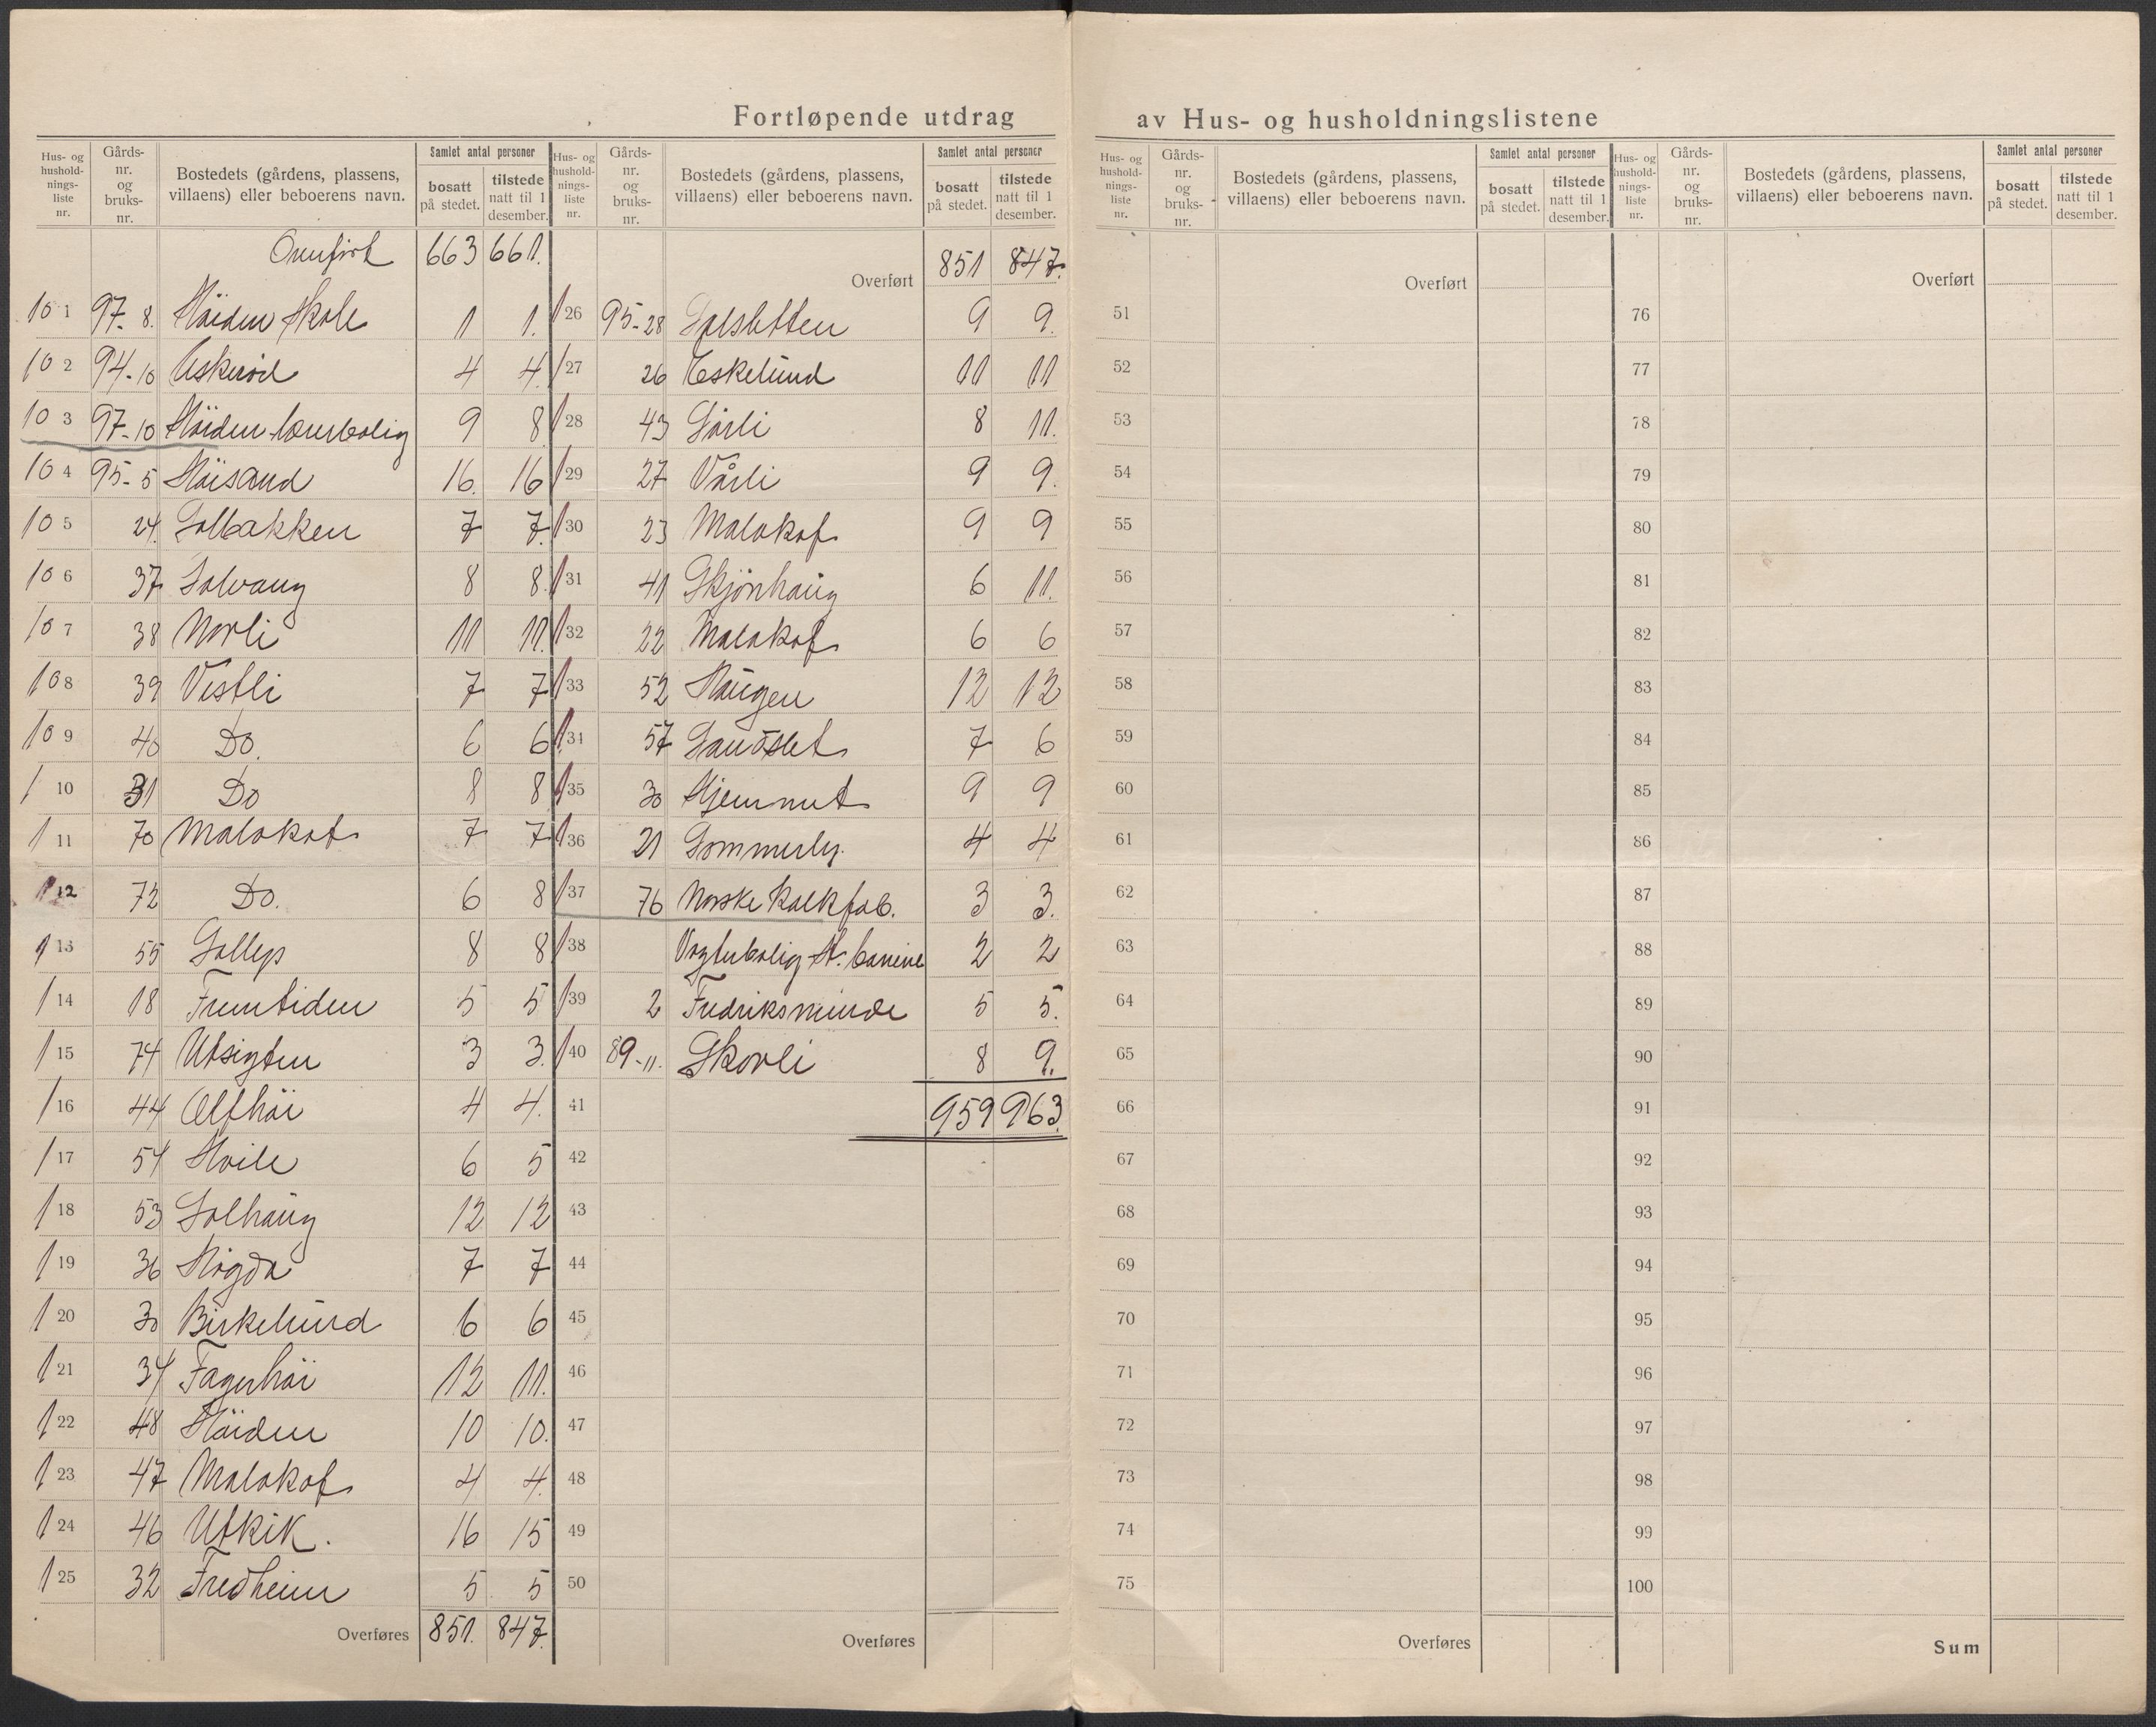 Fortløpende utdrag av Hus- og husholdningslistene
Hus- og hushold- nings- liste nr.
Gårds- nr. og bruks- nr.
Bostedets (gårdens, plassens, villaens) eller beboerens navn.
Samlet antal personer
bosatt på stedet.
tilstede natt til 1 desember.
Hus- og hushold- nings- liste nr.
Gårds- nr. og bruks- nr.
Bostedets (gårdens, plassens, villaens) eller beboerens navn.
Samlet antal personer
bosatt på stedet.
tilstede natt til 1 desember.
Overført 663 661.
101 97-8. Høiden Skole 1 1.
102 94-10 Eskerød 4 4.
103 97-10 Høiden Lærerbolig 9 8
104 95-5 Høisand 16. 16
105 24. Solbakken 7 7.
106 37 Solvang 8 8.
107 38 Norli 11 11.
108 39 Vestli 7 7
109 40 Do. 6 6
110 31 Do 8 8
111 70 Malakof 7 7
112 72 Do. 6 8
113 55 Solleys 8 8
114 18 Fremtiden 5 5
115 74 Utsigten 3 3.
116 44 Alfhøi 4 4.
117 54 Hvile 6 5
118 53 Solhaug 12 12
119 36 Høgda 7 7
120 30 Birkelund 6 6
121 34 Fagerhøi 12 11.
122 48 Høiden 10 10.
123 47 Malakof 4 4.
124 46 Utkik. 16 15
125 32 Fredheim 5 5
Overføres 851. 847.
Overført 851 847.
126 95-28 Solsletten 9 9.
127 26 Eskelund 11 11
128 43 Sørli 8 11.
129 27 Vårli 9 9.
130 23 Malakof 9 9
131 41 Skjønhaug 6 11.
132 22 Malakof 6 6
133 52 Haugen 12 12
134 57 Sandslet 7 6
135 30 Hjemmet 9 9
136 21 Sommerly. 4 4
137 76 Norske Kalkfab. 3 3.
138 Vogterbolig St. 2 2
139 2 Fredriksminde 5 5.
140 89-11. Skovli 8 9.
41 959 963.
42
43
44
45
46
47
48
49
50
Overføres
Hus- og hushold- nings- liste nr.
Gårds- nr. og bruks- nr.
Bostedets (gårdens, plassens, villaens) eller beboerens navn.
Samlet antal personer
bosatt på stedet.
tilstede natt til 1 desember.
Hus- og hushold- nings- liste nr.
Gårds- nr. og bruks- nr.
Bostedets (gårdens, plassens, villaens) eller beboerens navn.
Samlet antal personer
bosatt på stedet.
tilstede natt til 1 desember.
Overført
51
52
53
54
55
56
57
58
59
60
61
62
63
64
65
66
67
68
69
70
71
72
73
74
75
Overføres
Overført
76
77
78
79
80
81
82
83
84
85
86
87
88
89
90
91
92
93
94
95
96
97
98
99
100
Sum